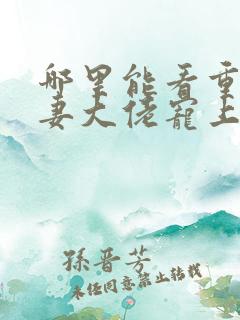 哪里能看重
妻大佬宠上
孫晋芳
未经同意禁止转载